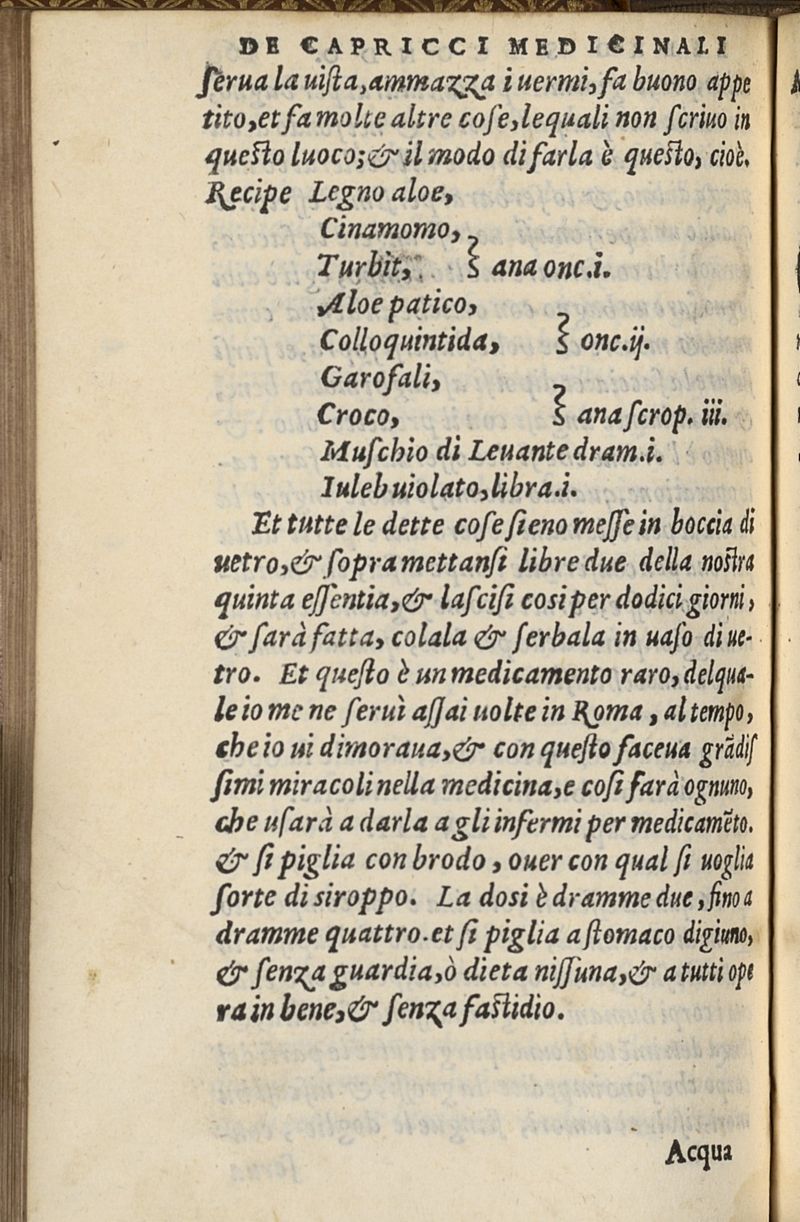 DE CAPRICCI MEDICINALI
ſerua la uiſta, ammazza i uermi, fa buono appe
tito, et fa molte altre coſe, lequali non ſcriuo in
queſto luoco; & il modo di farla è queſto, cioè.
Recipe Legno aloe,
Cinamomo,
Turbit, ana onc.i.
Aloe patico,
Colloquintida, onc.ij.
Garofali,
Croco, ana ſcrop. iii.
Muſchio di Leuante dram.i.
Iuleb uiolato, libra.i.
Et tutte le dette coſe ſieno meſſe in boccia di
uetro, & ſopra mettanſi libre due della noſtra
quinta eſſentia, & laſciſi cosi per dodici giorni,
& ſarà fatta, colala & ſerbala in uaſo di ue-
tro. Et queſto è un medicamento raro, delqua-
le io me ne ſeruì aſſai uolte in Roma, al tempo,
che io ui dimoraua, & con queſto faceua grãdiſ
ſimi miracoli nella medicina, e coſi farà ognuno,
che uſarà a darla a gli infermi per medicamẽto.
& ſi piglia con brodo, ouer con qual ſi uoglia
ſorte di siroppo. La dosi è dramme due, fino a
dramme quattro. et ſi piglia a ſtomaco digiuno,
& ſenza guardia, ò dieta niſſuna, & a tutti ope
ra in bene, & ſenza faſtidio.
Acqua